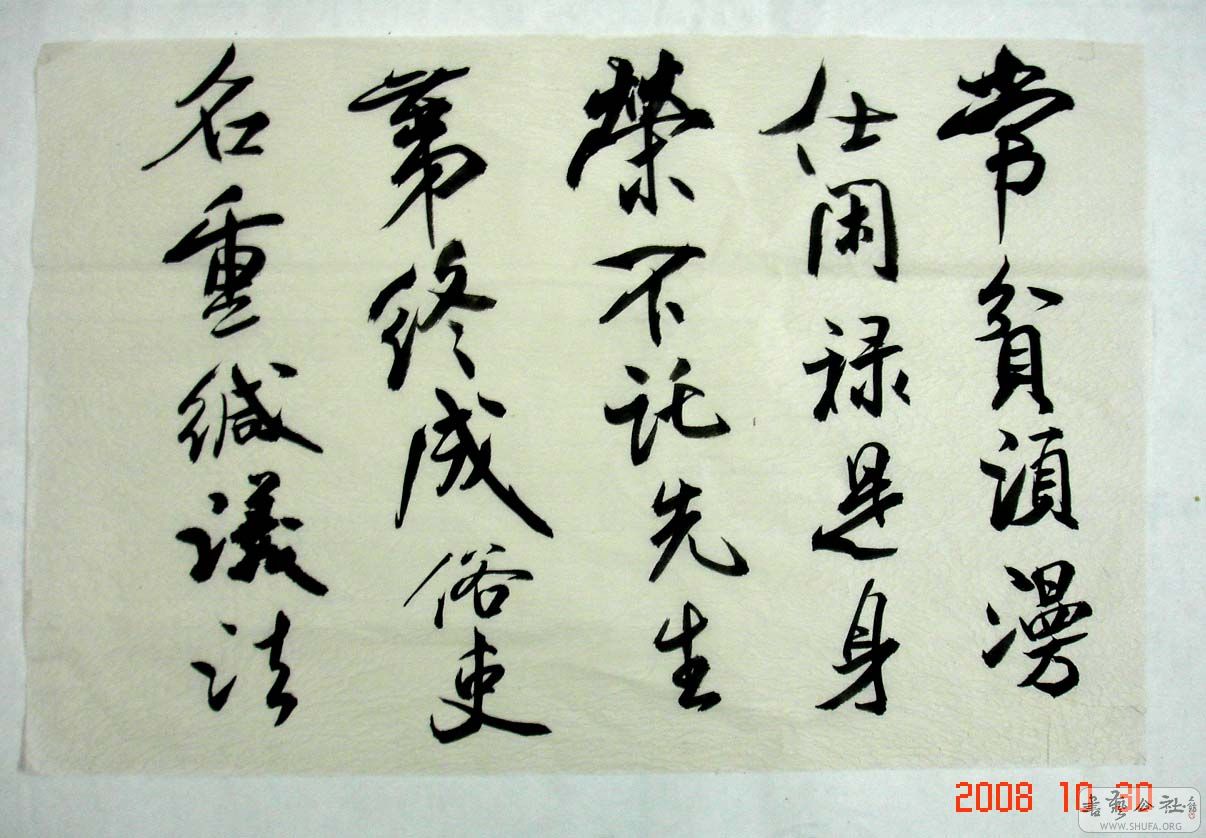 常貧須漫
仕閑禄是身
榮不託先生
第終成俗吏
名重緘議法
2008 10 30
書藝公社
WWW.SHUFA.ORG